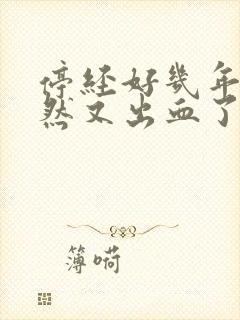 停经好几年
然又出血了
簿嗬